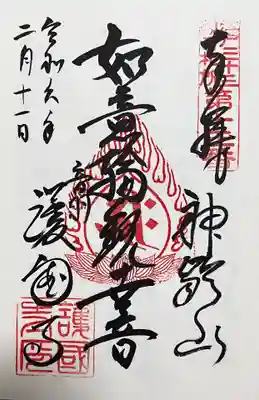 奉拝
神齢山
如意輪観世音
音羽
護國寺
令和六年
二月十一日
護國